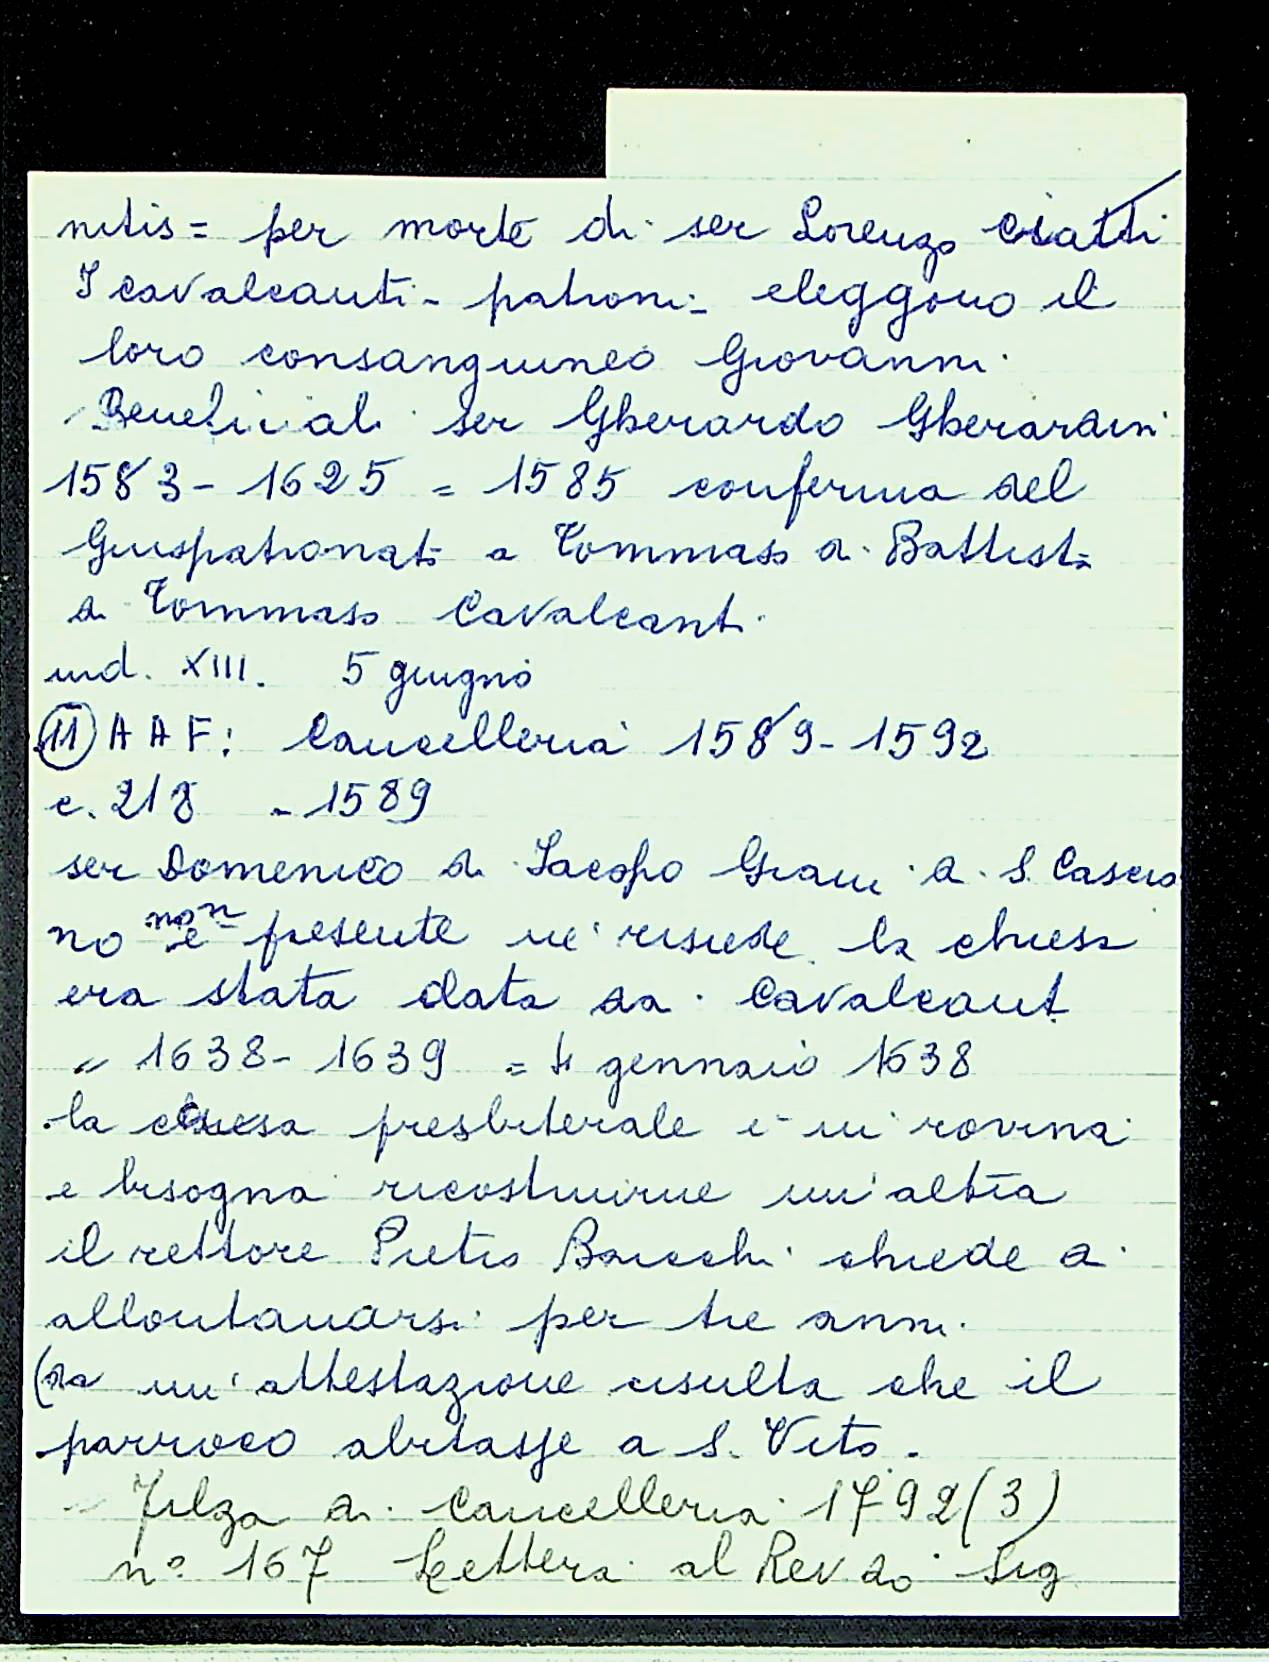 nitis = per morte di ser Lorenzo Ciatti
I Cavalcanti - patroni - eleggono il
loro consanguineo Giovanni.
Beneficiali ser Gherardo Gherardini
1583 - 1625 = 1585 conferma del
Giuspatronato a Tommaso di Battista
di Tommaso Cavalcanti.
ind. XIII. 5 giugno
(11) A A F: Cancelleria 1589 - 1592
c. 218 - 1589
ser Domenico di Jacopo Grani di S. Cascia
no non è presente nè risiede. la chiesa
era stata data da Cavalcanti
" 1638 - 1639 = 4 gennaio 1638
la chiesa presbiterale è in rovina
e bisogna ricostruirne un'altra
il rettore Pietro Bacechi chiede di
allontanarsi per tre anni.
(da un'attestazione risulta che il
parroco abitasse a S. Vito.
" Filza di Cancelleria 1792 (3)
n° 167 Lettera al Rev do Sig